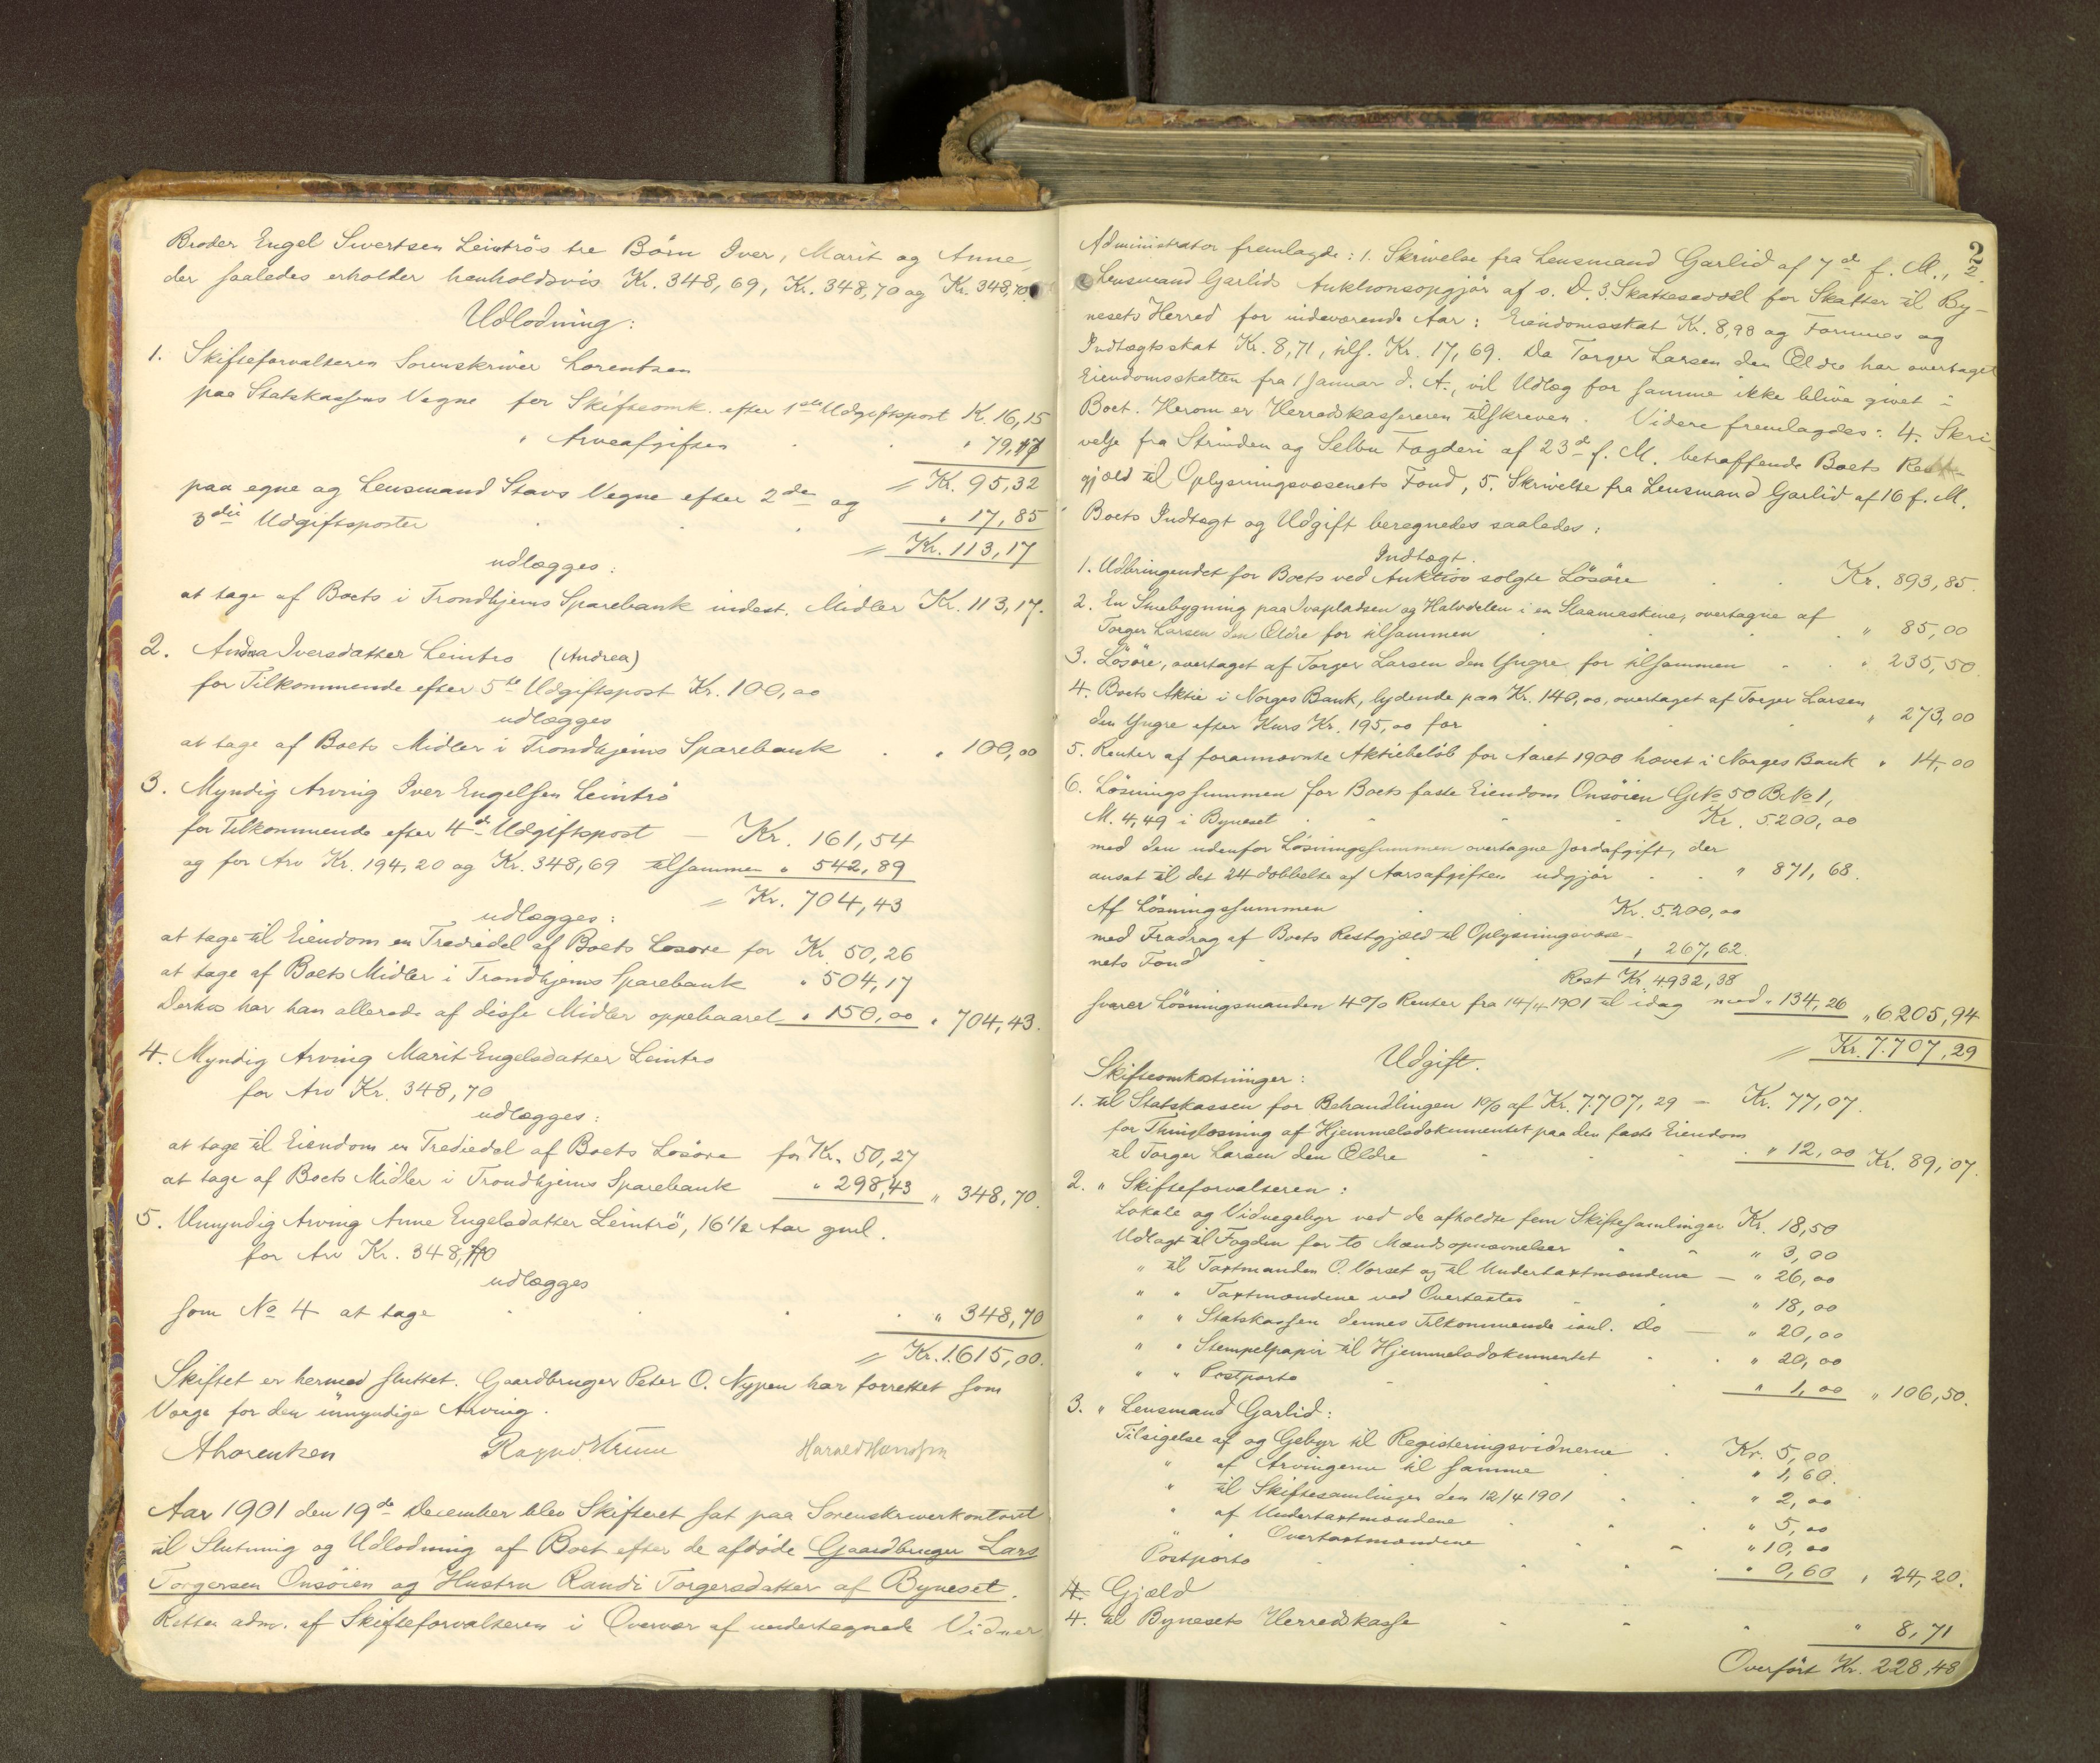 Broder Engel Sivertsen Leintrøs tre Børn Iver, Marit og Anne,
der saaledes erholder henholdsvis Kr. 348,69, Kr. 348,70 og Kr. 348,70.
Udlodning:
1. Skifteforvalteren Sorenskriver Lorentzen
paa Statskassens Vegne for Skifteomk. efter 1ste Udgiftspost K. 16,15
" Arveafgiften " 79,17
= Kr. 95,32
paa egne og Lensmand Stavs Vegne efter 2den og
3die Udgiftsposter " 17,85
= Kr. 113,17
udlægges:
at tage af Boets i Trondhjems Sparebank indest. Midler Kr. 113,17.
2. Andrea Iversdatter Leintrø (Andrea)
for Tilkommende efter 5te Udgiftspost Kr. 100,00
udlægges
at tage af Boets Midler i Trondhjems Sparebank " 100,00
3. Myndig Arving Iver Engelsen Leintrø
for Tilkommende efter 4de Udgiftspost — Kr. 161,54
og for Arv Kr. 194,20 og Kr. 348,69 tilsammen " 542,89
= Kr. 704,43
udlægges:
at tage til Eiendom en Trediedel af Boets Løsøre for Kr. 50,26
at tage af Boets Midler i Trondhjems Sparebank " 504,17
Derhos har han allerede af disse Midler oppebaaret " 150,00 " 704,43.
4. Myndig Arving Marit Engelsdatter Leintrø
for Arv Kr. 348,70
udlægges:
at tage til Eiendom en Trediedel af Boets Løsøre for Kr. 50,27
at tage af Boets Midler i Trondhjems Sparebank " 298,43 " 348,70.
5. Umyndig Arving Anne Engelsdatter Leintrø, 16 1/2 Aar gml.
for Arv Kr. 348,70
udlægges
som No 4 at tage " 348,70
= Kr. 1.615,00.
Skiftet er hermed sluttet. Gaardbruger Peter O. Nypen har forrettet som
Værge for den umyndige Arving.
A Lorentzen Harald Hansen
Aar 1901 den 19de December blev Skifteret sat paa Sorenskriverkontoret
til Slutning og Udlodning af Boet efter de afdøde Gaardbruger Lars
Torgersen Onsøien og Hustru Randi Torgersdatter af Byneset.
Retten adm. af Skifteforvalteren i Overvær af undertegnede Vidner
2
Administrator fremlagde: 1. Skrivelse fra Lensmand Garlid af 7de f. M., 2
Lensmand Garlids Auktionsopgjør af s. D. 3. Skatteseddel for Skatter til By-
nesets Herred for indeværende Aar: Eiendomsskat Kr. 8,98 og Formues og
Indtægtsskat Kr. 8,71, tils. Kr. 17,69. Da Torger Larsen den Ældre har overtaget
Eiendomsskatten fra 1 Januar d. A., vil Udlæg for samme ikke blive givet i
Boet. Herom er Herredskassereren tilskreven. Videre fremlagdes: 4. Skri-
velse fra Strinden og Selbu Fogderi af 23de f. M. betræffende Boets Rest-
gjæld til Oplysningsvæsenets Fond, 5. Skrivelse fra Lensmand Garlid af 16 f. M.
Boets Indtægt og Udgift beregnedes saaledes:
Indtægt.
1. Udbringendet for Boets ved Auktion solgte Løsøre Kr. 893,85.
2. En Smebygning paa Ivapladsen og Halvdelen i en Slaamaskine, overtagne af
Torger Larsen den Ældre for tilsammen " 85,00
3. Løsøre, overtaget af Torger Larsen den Yngre for tilsammen " 235,50.
4. Boets Aktie i Norges Bank, lydende paa Kr. 140,00, overtaget af Torger Larsen
den Yngre efter Kurs Kr. 195,00 for " 273,00
5. Renter af forannævnte Aktiebeløb for Aaret 1900 hævet i Norges Bank " 14,00
6. Løsningssummen for Boets faste Eiendom Onsøien G.No 50 B.No 1,
M. 4,49 i Byneset Kr. 5.200,00
med den udenfor Løsningssummen overtagne Jordafgift, der
ansat til det 24 dobbelte af Aarsafgiften udgjør " 871,68.
Af Løsningssummen Kr. 5.200,00
med Fradrag af Boets Restgjæld til Oplysningsvæse-
nets Fond " 267,62.
Rest Kr 4932,38
svarer Løsningsmanden 4% Renter fra 14/4 1901 til idag med " 134,26 " 6205,94
= Kr. 7.707,29
Udgift.
Skifteomkostninger:
1. til Statskassen for Behandlingen 1% af Kr. 7.707,29 — Kr. 77,07.
for Thinglæsning af Hjemmelsdokumentet paa den faste Eiendom
til Torger Larsen den Ældre " 12,00 Kr. 89,07.
2. " Skifteforvalteren:
Lokale og Vidnegebyr ved de afholdte fem Skiftesamlinger Kr. 18,50
Udlagt til Fogden for to Mændsopnævnelser " 3,00
" til Taxtmanden O. Vorset og til Undertaxtmændene — " 26,00
" " Taxtmændene ved Overtaxten " 18,00
" " Statskassen dennes Tilkommende ianl. Do — " 20,00
" " Stempelpapir til Hjemmelsdokumentet " 20,00
" " Postporto " 1,00 " 106,50.
3. " Lensmand Garlid:
Tilsigelse af og Gebyr til Registeringsvidnerne Kr. 5,00
" af Arvingerne til samme " 1,60.
" til Skiftesamlingen den 12/4 1901 " 2,00
" af Undertaxtmændene " 5,00
" " Overtaxtmændene " 10,00
Postporto " 0,60 " 24,20.
4. Gjæld
4. til Bynesets Herredskasse " 8,71
Overført Kr. 228,48